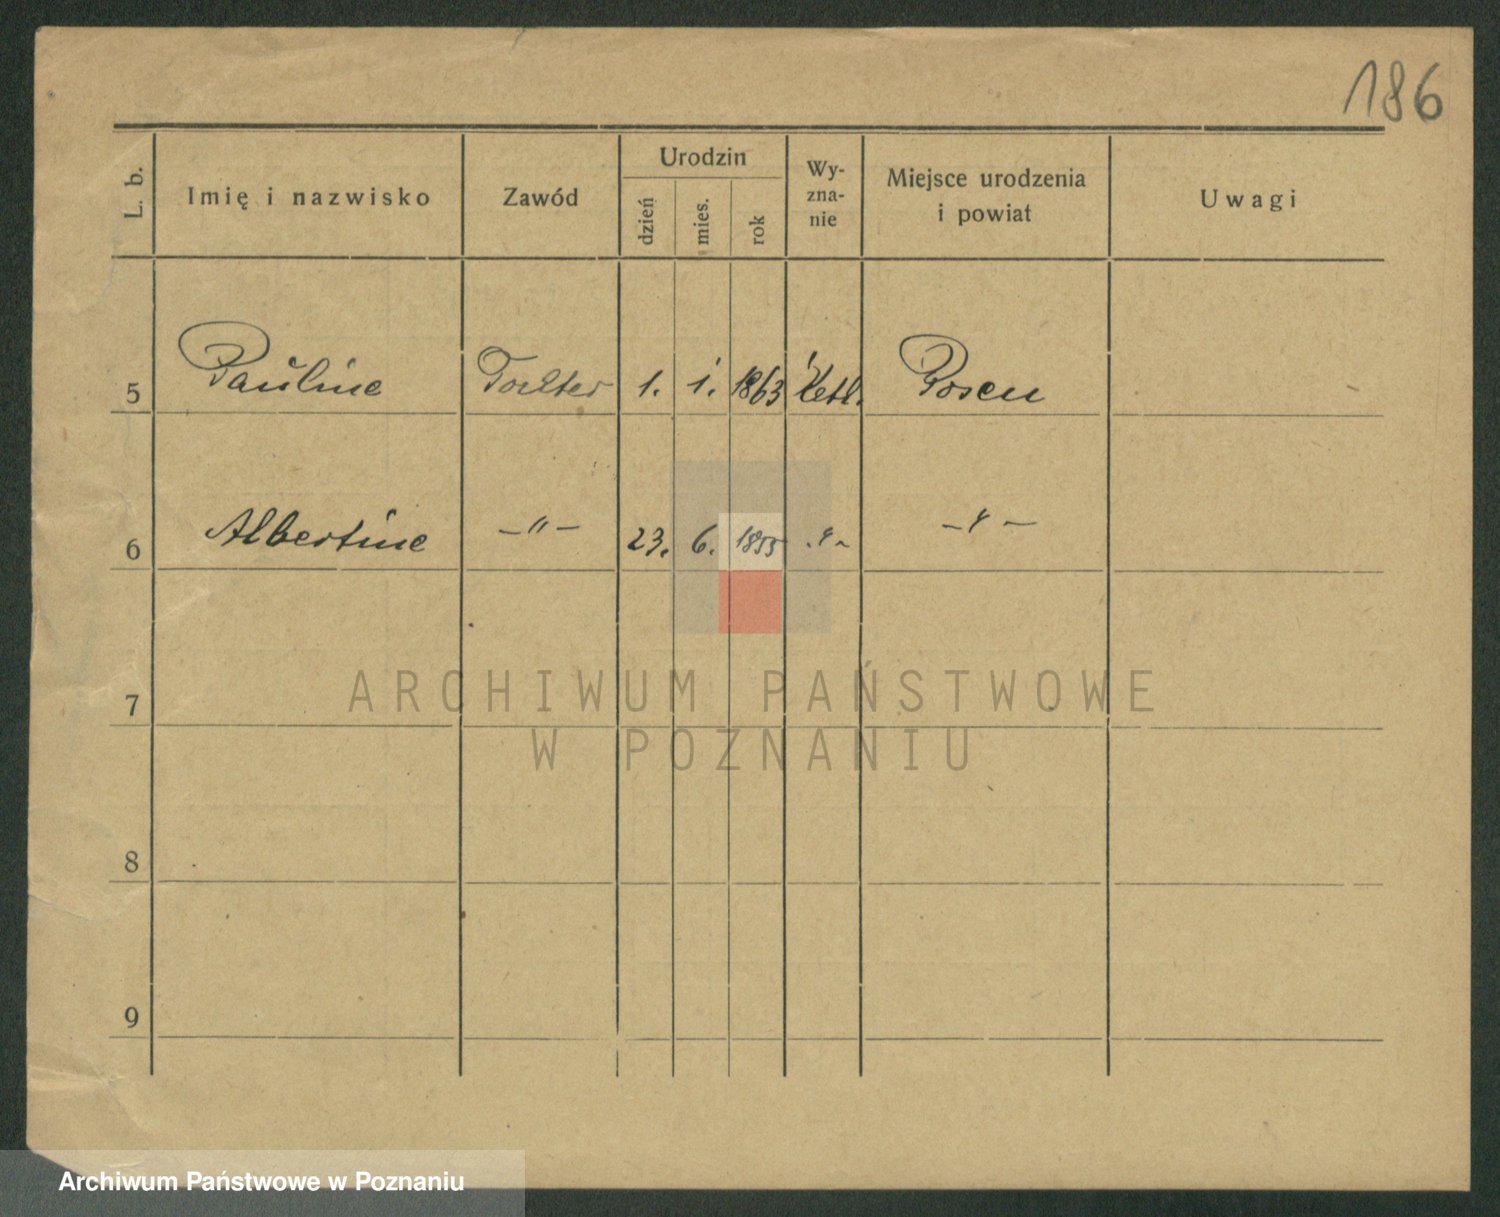 186
L. b. Imię i nazwisko Zawód Urodzin dzień mies. rok Wy-zna-nie Miejsce urodzenia i powiat Uwagi
5 Pauline Tochter 1. 1. 1863 Kath. Posen
6 Albertine -"- 23. 6. 1855 -"- -"-
7
8
9
ARCHIWUM PAŃSTWOWE
W POZNANIU
Archiwum Państwowe w Poznaniu